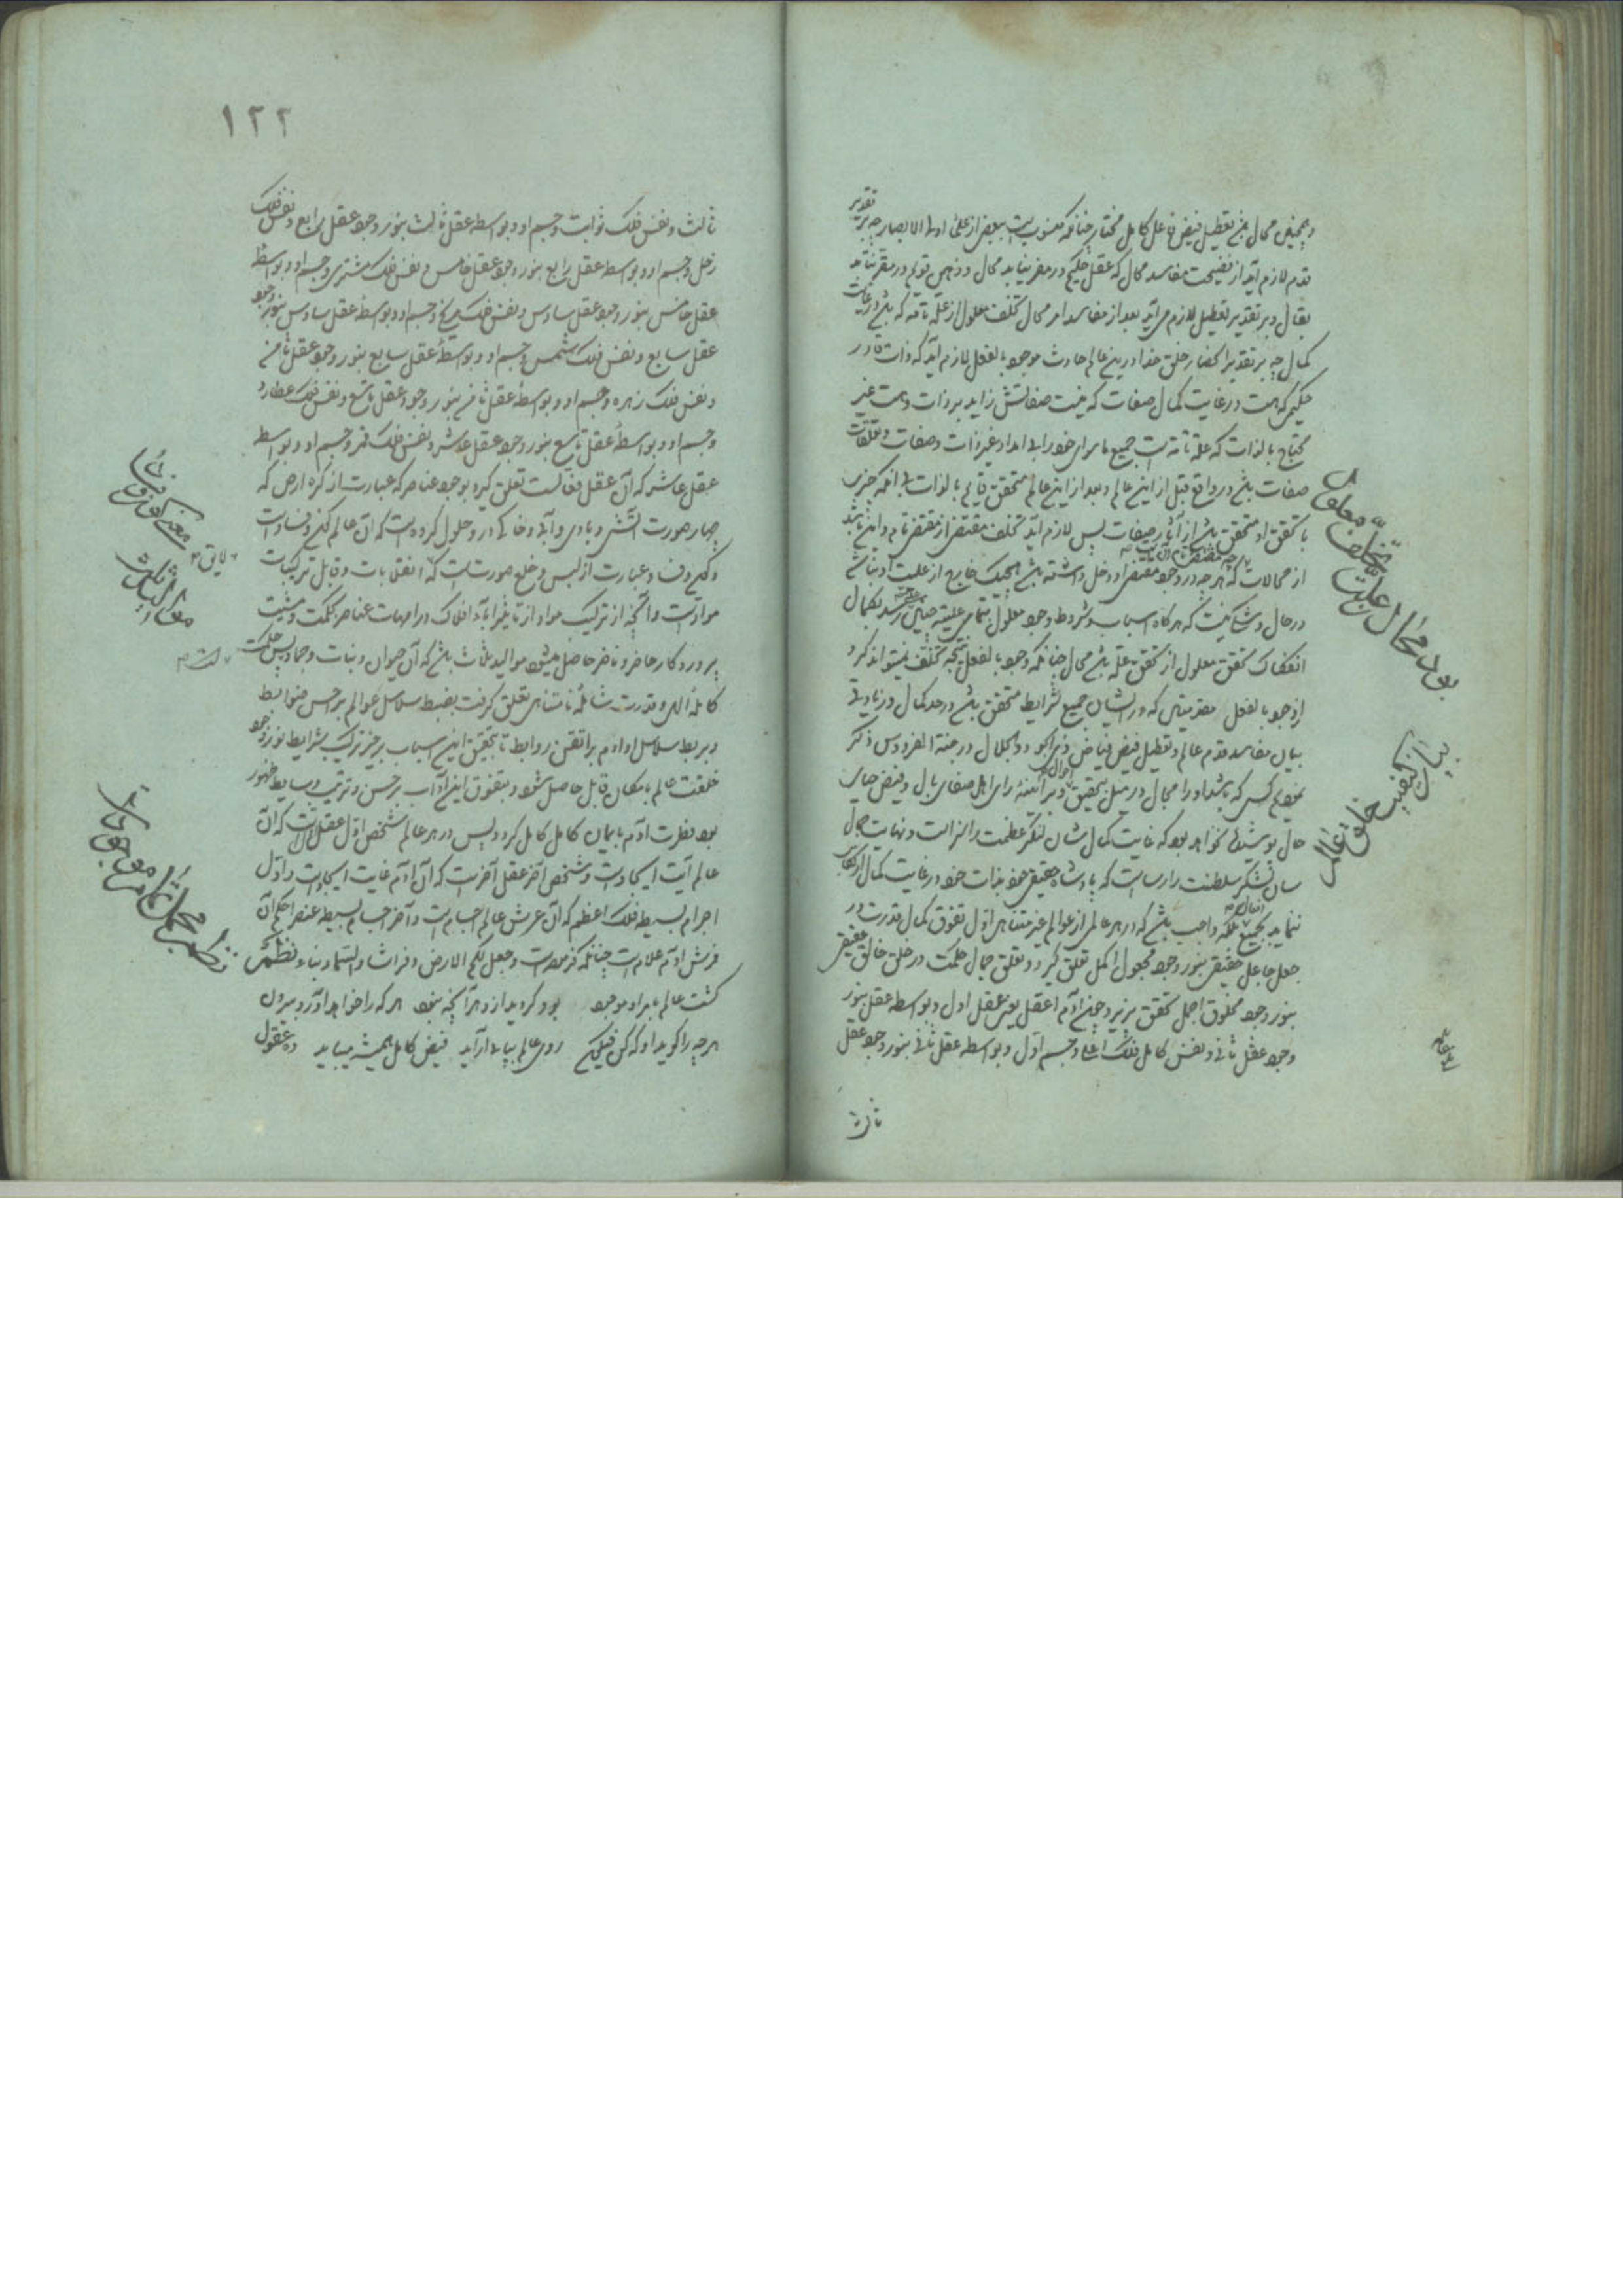 تقدیر
و همچنین محال باشد تعطیل فیض فاعل کامل مختار چنانکه منسوبست ببعضی از علمای اولی الابصار چه بر
قدم لازم آید از فضیحت مفاسد محال که عقل حکیم در مقر نیاید محال و ذهن قویم در مقر نیاید
بقال و بر تقدیر تعطیل لازم می آید بعد از مفاسد امر محال تخلف معلول از علة تامه که باشد در غایت
کمال چه بر تقدیر انحصار خلق خدا درین عالم حادث موجود بالفعل لازم آید که ذات قادر
حکیم که هست در غایت کمال صفات که نیست صفاتش زاید بر ذات و هست غیر
محتاج بالذات که علة تامه است جمیع ماسوای خود را بی امداد غیر ذات و صفات و تعلقات
صفات باشد در واقع قبل از این عالم و بعد از این عالم متحقق قایم بالذات بی آنکه چیزی
با تحقق او متحقق باشد از آثار صفات پس لازم آید تخلف مقتضی از مقتضی تام و این باشد
از محالات که هر چه در وجود مقتضی او دخل داشته باشد هیچیک خارج از علیت او نباشد
در حال و شک نیست که هر گاه اسباب و شروط وجود معلول بتمامی علیته رسد بکمال
انفکاک تحقق معلول از تحقق علة باشد محال چنانکه وجود بالفعل نتیجه تخلف نمیتواند کرد
از وجود بالفعل مقدمتین که در ایشان جمیع شرایط متحقق باشد در حد کمال و زیادتی
بیان مفاسد قدم عالم و تعطیل فیض فیاض ذی الجود و الجلال در جنة الفردوس ذکر
نمودم کسی که باشد او را مجال در میل تحقیق احوال و بر آئینه رای اهل صفای بال و فیض حیات
حال پوشیده نخواهد بود که غایت کمال شان لنگر عظمت را نزاست و نهایت جمال
سان لشکر سلطنت را رساست که پادشاه حقیقی خود بذات خود در غایت کمال ارتکاب
ننماید بجمیع افعال بلکه واجب باشد که در هر عالمی از عوالم غیر متناهی اول تفوق کمال قدرت در
جعل جاعل حقیقی بنور وجود مجعول اکمل تعلق گیرد و تعلق جمال حکمت در خلق خالق حقیقی
بنور وجود مخلوق اجمل تحقق پذیرد چون آدم اعقل یعنی عقل اول و بواسطه عقل بنور
وجود عقل ثانی و نفس کامل فلک اعلی و جسم اول و بواسطه عقل ثانی بنور وجود عقل
تخلف معلول
از علت
بود محال
بیان کیفیت خلق عالم
۱۲۲
ثالث و نفس فلک ثوابت و جسم او و بواسطه عقل ثالث بنور وجود عقل رابع و نفس فلک
زحل و جسم او و بواسطه عقل رابع بنور وجود عقل خامس و نفس فلک مشتری و جسم او و بواسطه
عقل خامس بنور وجود عقل سادس و نفس فلک مریخ و جسم او و بواسطه عقل سادس بنور وجود
عقل سابع و نفس فلک شمس و جسم او و بواسطه عقل سابع بنور وجود عقل ثامن
و نفس فلک زهره و جسم او و بواسطه عقل ثامن بنور وجود عقل تاسع و نفس فلک عطارد
و جسم او و بواسطه عقل تاسع بنور وجود عقل عاشر و نفس فلک قمر و جسم او و بواسطه
عقل عاشر که آن عقل فعالست تعلق گیرد بوجود عناصر که عبارت از کره ارض که
چهار صورت آتشی و بادی و آبی و خاکی درو حلول کرده است که آن عالم کون و فساد است
و کون و فساد عبارت از لبس و خلع صورتست که انقلابات و قابل ترکیبات
موادست و آنچه از ترکیب مواد از تاثیر آباء افلاک در امهات عناصر بحکمت و مشیت
پروردگار حاضر و ناظر حاصل میشود موالید ثلاث باشد که آن حیوان و نبات و جماد پس حکمت
کامله الهی و قدرت شامله نامتناهی تعلق گرفت بضبط سلاسل عوالم بر حسن ضوابط
و بربط سلاسل اوادم بر اتقن روابط تا بتحقیق این اسباب بر خیر ترکیب شرایط نور وجود
خلقت عالم بامکان قابل حاصل شود و بتفوق این آداب بر حسن و ترتیب وسایط ظهور
بود فطرت آدم بایمان کامل کامل گردد پس در هر عالم شخص اول عقل اول است که آن
عالم آیت ایجادست و شخص آخر عقل آخرست که آن آدم غایت ایجادست و اول
اجرام بسیطه فلک اعظم که آن عرش عالم اجسام است و آخر اجسام بسیطه عنصر احکم آن
فرش آدم علامست چنانکه فرمودست وجعل لکم الارض فراشا والسماء بناء نظم
گشت عالم بامر او موجود بود گردید از و هر آنچه نبود هر که را خواهد آورد بیرون
هر چه را گوید او که کن فیکون روی عالم بیان آراید فیض کامل همیشه میباید
معنی کون و فساد
موالید ثلاث